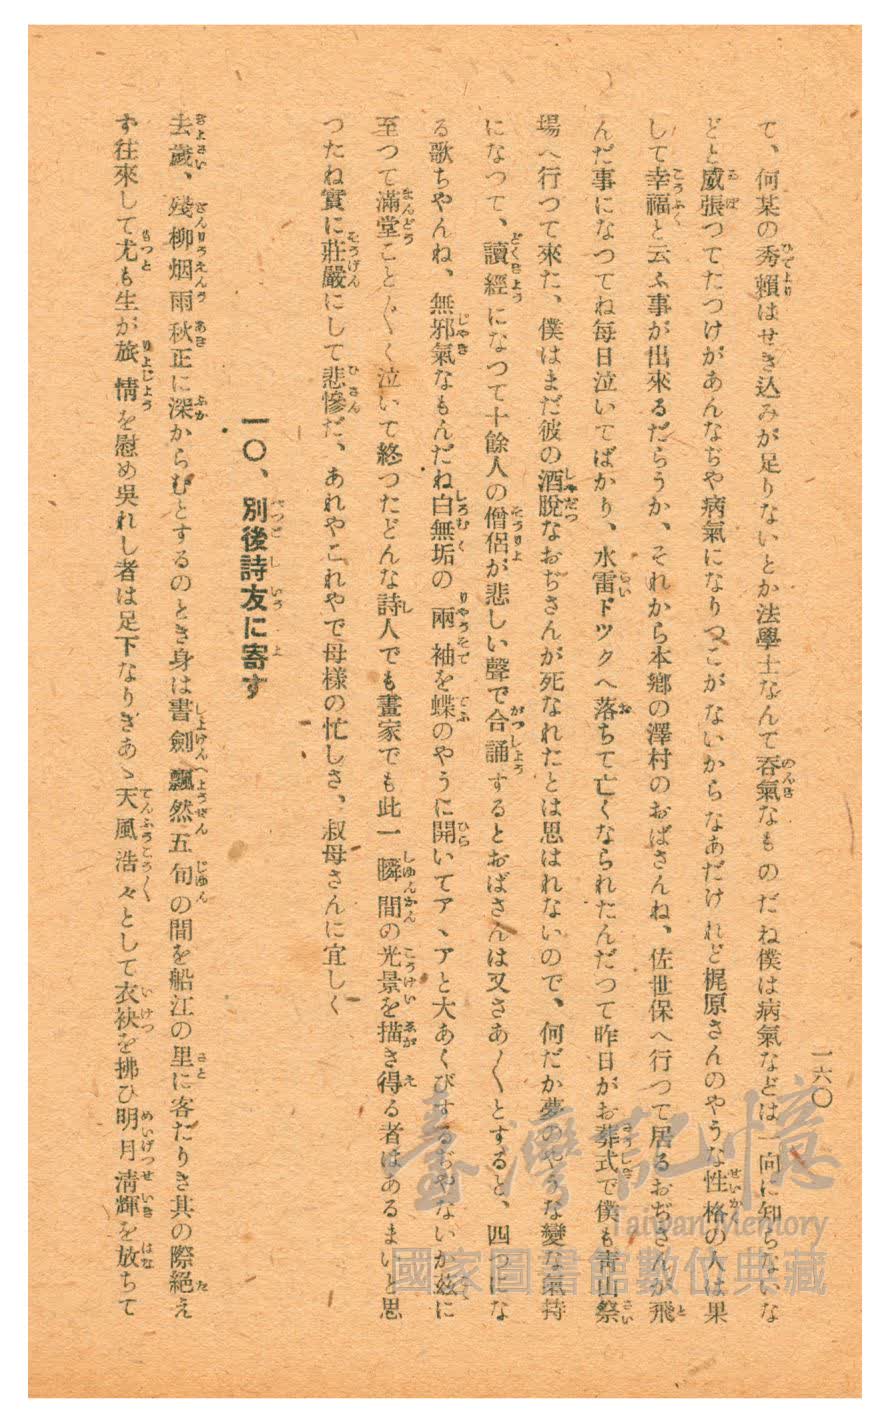 一六〇
て、何某の秀賴はせき込みが足りないとか法學士なんて呑氣なものだね僕は病氣などは一向に知らないな
どと威張つてたつけがあんなぢや病氣になりつこがないからなあだけれど梶原さんのやうな性格の人は果
して幸福と云ふ事が出來るだらうか、それから本鄕の澤村のおばさんね、佐世保へ行つて居るおぢさんが飛
んだ事になつてね每日泣いてばかり、水雷ドツクへ落ちて亡くなられたんだつて昨日がお葬式で僕も靑山祭
場へ行つて來た、僕はまだ彼の酒脫なおぢさんが死なれたとは思はれないので、何だか夢のやうな變な氣持
になつて、讀經になつて十餘人の僧侶が悲しい聲で合誦するとおばさんは又さあ〱とすると、四つにな
る歌ちやんね、無邪氣なもんだね白無垢の兩袖を蝶のやうに開いてアヽアと大あくびするぢやないか玆に
至つて滿堂こと〲く泣いて終つたどんな詩人でも畫家でも此一瞬間の光景を描き得る者はあるまいと思
つたね實に莊嚴にして悲慘だ、あれやこれやで母樣の忙しさ、叔母さんに宜しく
一〇、別後詩友に寄す
去歲、殘柳烟雨秋正に深からむとするのとき身は書劍飄然五旬の間を船江の里に客たりき其の際絕え
ず往來して尤も生が旅情を慰め吳れし者は足下なりきあゝ天風浩々として衣袂を拂ひ明月淸輝を放ちて
臺灣記憶
Taiwan Memory
國家圖書館數位典藏